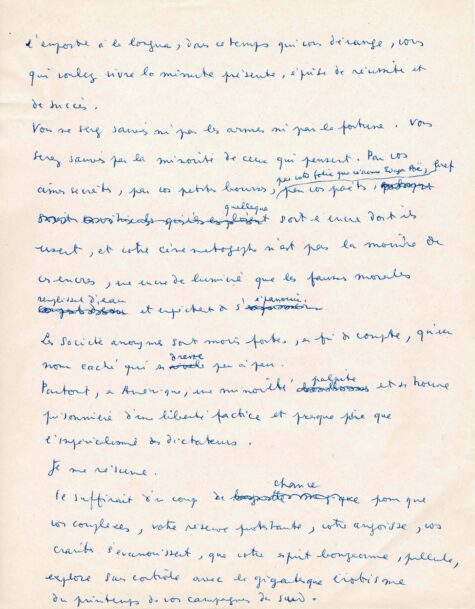 l'emporte à la longue, dans ce temps qui vous dérange, vous
qui voulez vivre la minute présente, éprise de réussite et
de succès.
Vous ne serez sauvés ni par les armes ni par la fortune. Vous
serez sauvés par la minorité de ceux qui pensent. Par vos
par cette folie que j'aime Edgar Poë, bref
âmes secrètes, par vos petits bourses, par vos poëtes,
quelle que
soit l'encre dont ils
usent, et votre cinématographe n'est pas la moindre de
ces encres, une encre de lumière que les fausses morales
remplissent d'eau et empêchent de s'épanouir.
Les Société anonymes sont moins fortes, en fin de compte, qu'un
nom caché qui se dresse peu à peu.
Partout, en Amérique, une minorité palpite et se trouve
prisonnière d'une liberté factice et presque pire que
l'impérialisme des dictateurs.
Je me résume.
Il suffirait d'un coup de chance pour que
vos complexes, votre réserve protestante, votre angoisse, vos
craintes s'évanouissent, que votre esprit bourgeonne, pullule,
explose sans contrôle avec le gigantesque érotisme
du printemps de vos campagnes du sud.